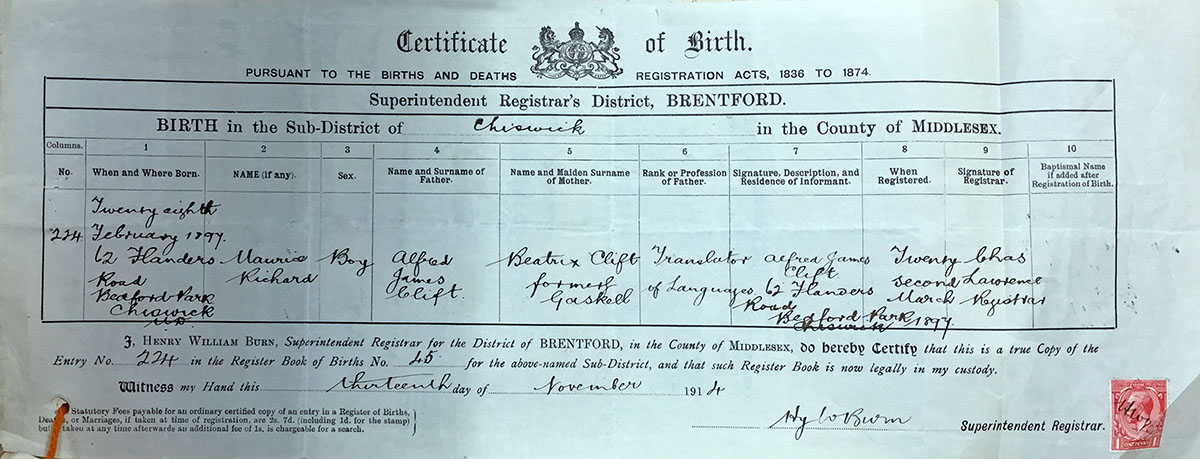 Certificate of Birth.
PURSUANT TO THE BIRTHS AND DEATHS REGISTRATION ACTS, 1836 TO 1874.
Superintendent Registrar's District, BRENTFORD.
BIRTH in the Sub-District of Chiswick in the County of MIDDLESEX.
Columns. 1 2 3 4 5 6 7 8 9 10
No. When and Where Born. NAME (if any). Sex. Name and Surname of Father. Name and Maiden Surname of Mother. Rank or Profession of Father. Signature, Description, and Residence of Informant. When Registered. Signature of Registrar. Baptismal Name if added after Registration of Birth.
Twenty eighth
224 February 1897.
62 Flanders Maurice Boy Alfred Beatrix Clift Translator Alfred James Twenty Chas
Clift
Road Richard James formerly of Languages 62 Flanders second Lawrence
Bedford Park Clift. Gaskell Road March Registrar
Chiswick Bedford Park 1897.
U.D. Chiswick
I, HENRY WILLIAM BURN, Superintendent Registrar for the District of BRENTFORD, in the County of MIDDLESEX, do hereby Certify that this is a true Copy of the
Entry No. 224 in the Register Book of Births No. 45 for the above-named Sub-District, and that such Register Book is now legally in my custody.
Witness my Hand this thirteenth day of November 1914
Statutory Fees payable for an ordinary certified copy of an entry in a Register of Births,
or Marriages, if taken at time of registration, are 2s. 7d. (including 1d. for the stamp)
taken at any time afterwards an additional fee of 1s. is chargeable for a search.
Hy W Burn Superintendent Registrar.
ONE PENNY